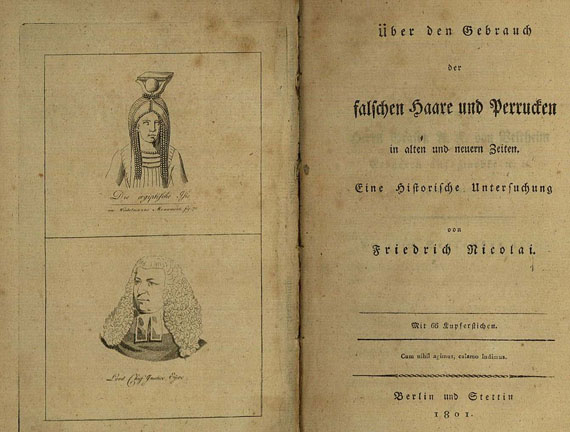 Die egyptische Isis
Lord Chief Justice Eyre.
Über den Gebrauch
der
falschen Haare und Perrucken
in alten und neuern Zeiten.
Eine Historische Untersuchung
von
Friedrich Nicolai.
Mit 66 Kupferstichen.
Cum nihil agimus, calamo ludimus.
Berlin und Stettin
1801.